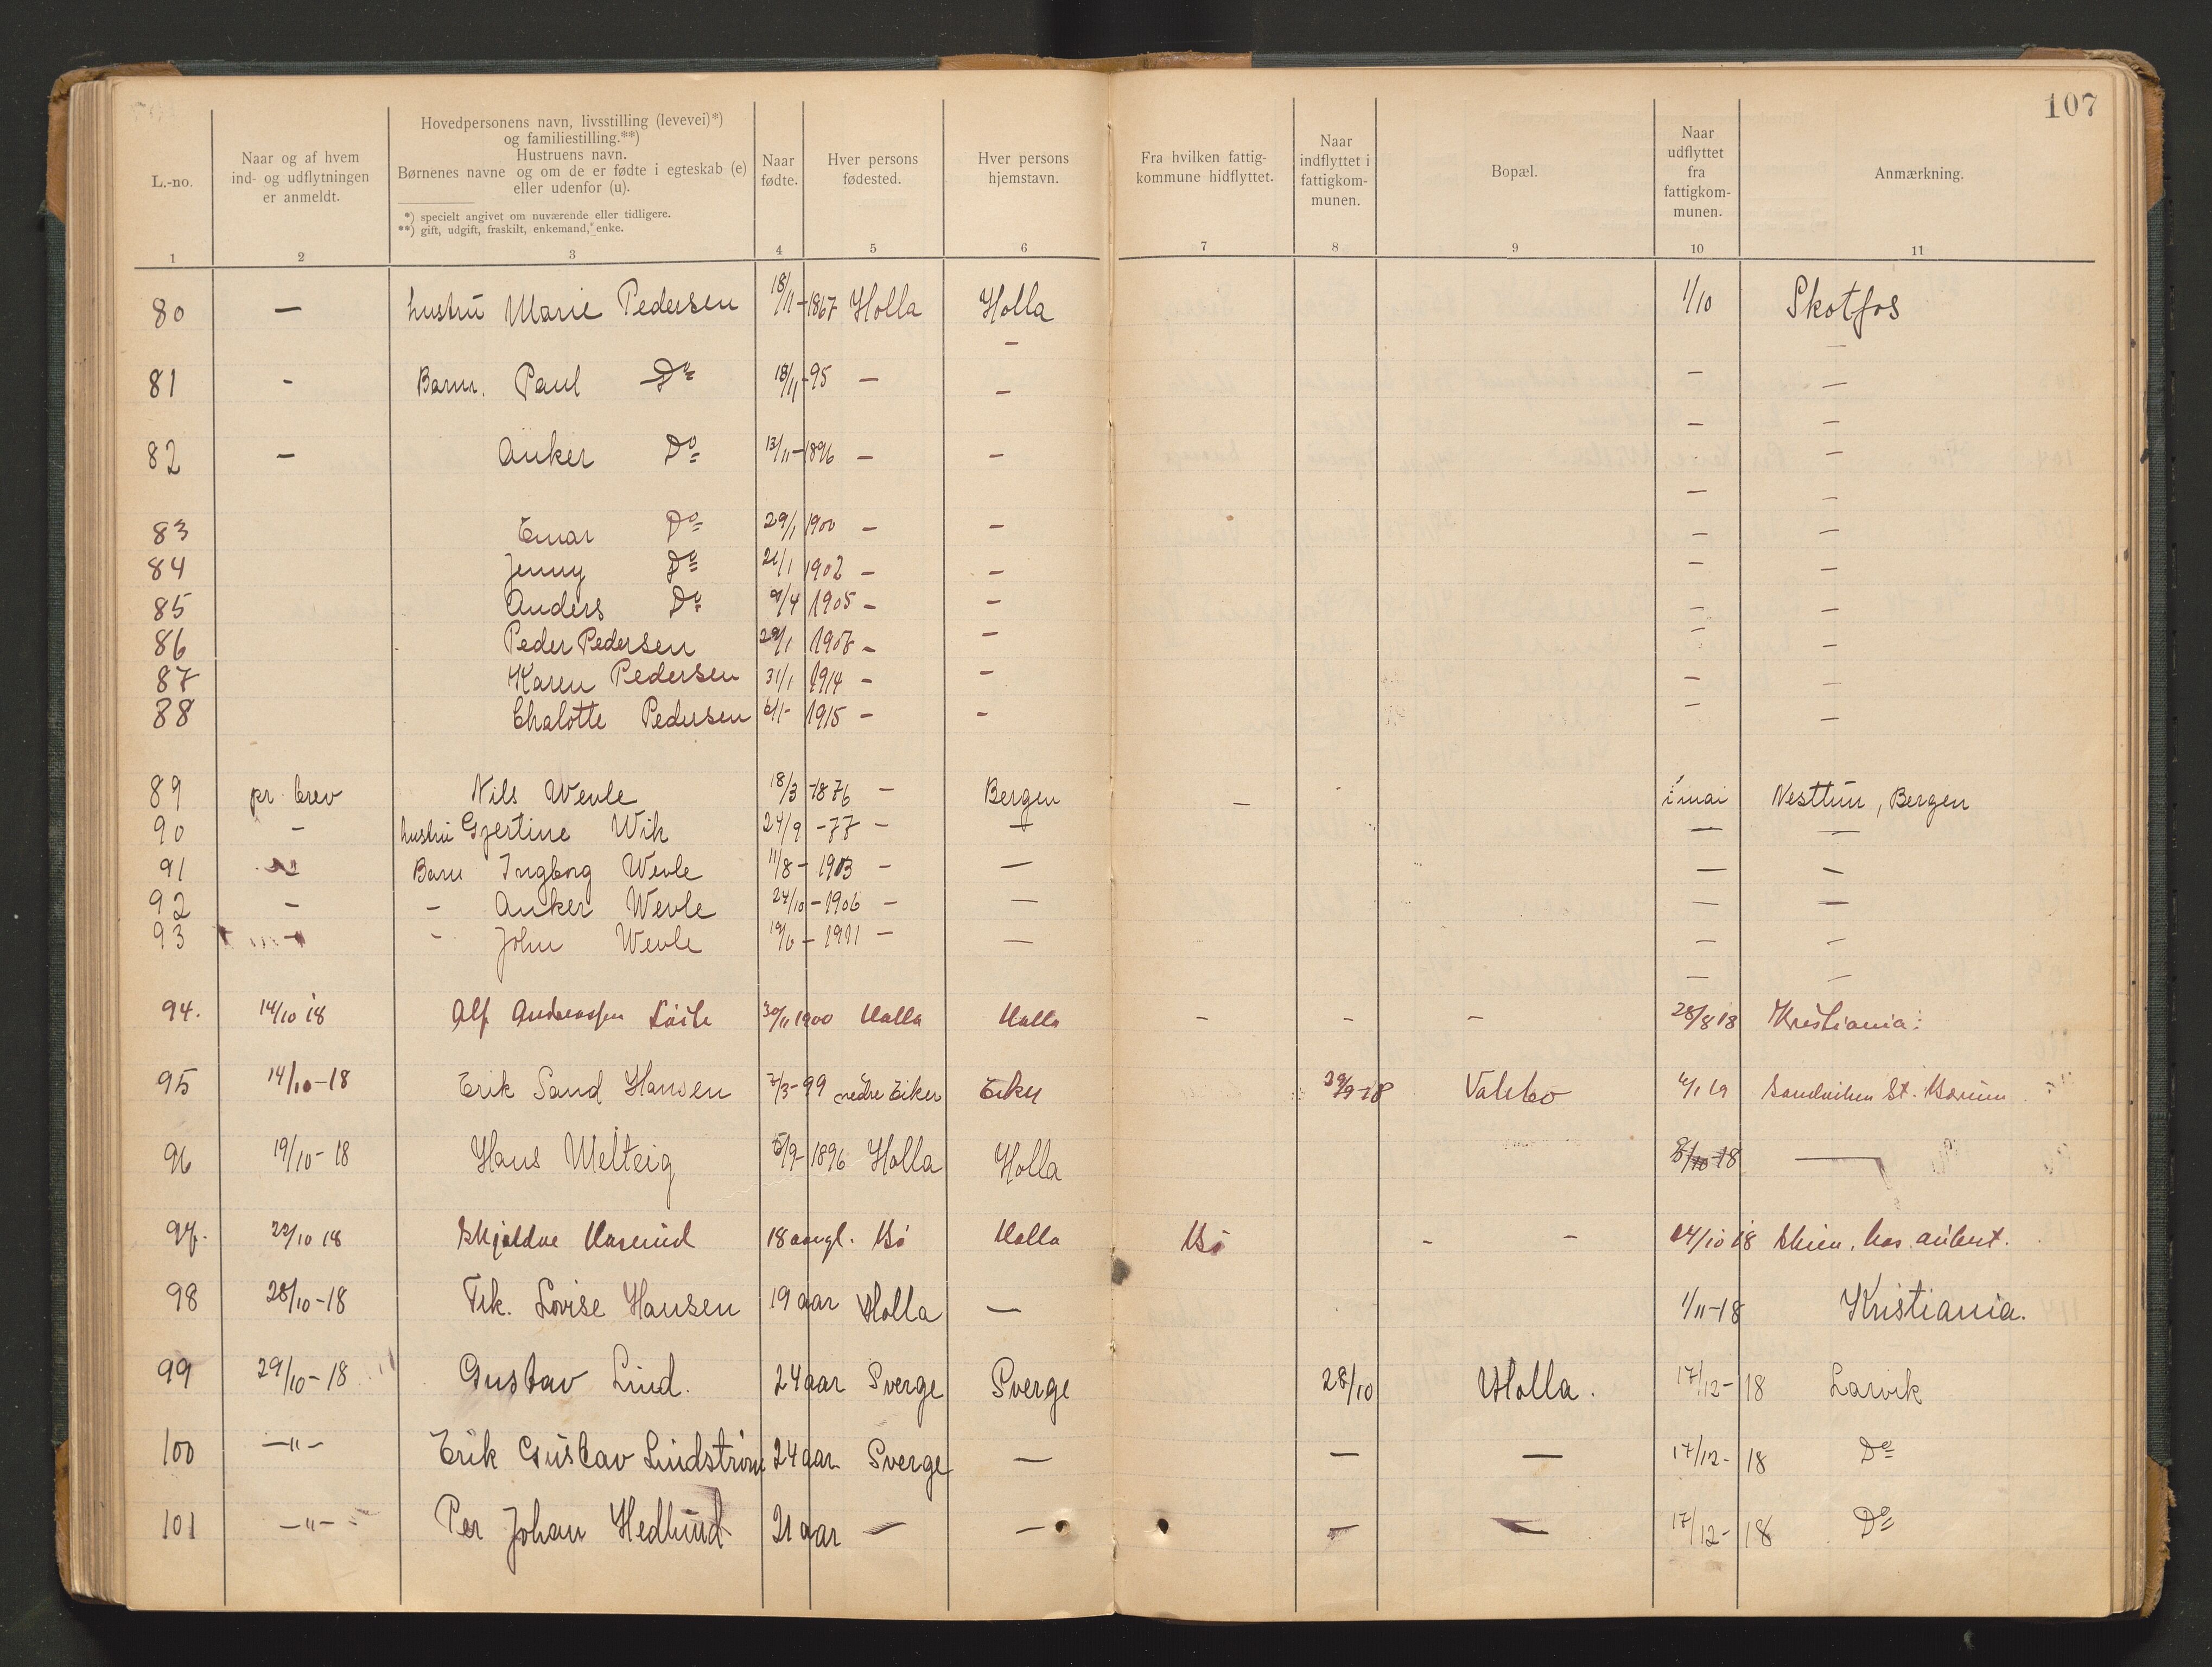 107
L.-no.
Naar og af hvem
ind- og udflytningen
er anmeldt.
Hovedpersonens navn, livsstilling (levevei)*)
og familiestilling.**)
Hustruens navn.
Børnenes navne og om de er fødte i egteskab (e)
eller udenfor (u).
*) specielt angivet om nuværende eller tidligere.
**) gift, udgift, fraskilt, enkemand, enke.
Naar
fødte.
Hver persons
fødested.
Hver persons
hjemstavn.
Fra hvilken fattig-
kommune hidflyttet.
Naar
indflyttet i
fattigkom-
munen.
Bopæl.
Naar
udflyttet
fra
fattigkom-
munen.
Anmærkning.
1 2 3 4 5 6 7 8 9 10 11
80 — hustru Marie Pedersen 18/11-1867 Holla Holla 1/10 Skotfos
81 - Barn. Paul Do 18/11-95 — — — —
82 — Anker Do 13/11-1896 — — — —
83 Einar Do 29/1 1900 — — — —
84 Jenny Do 21/1 1902 — — — —
85 Anders Do 9/4 1905 — — — —
86 Peder Pedersen 29/1 1908 — — — —
87 Karen Pedersen 31/1 1914 — — — —
88 Chalotte Pedersen 6/11- 1915 — — — —
89 pr. brev Nils Wevle 18/3-1876 — Bergen — i mai Nesttun, Bergen
90 - hustru Gjertine Wik 24/9 -77 — — — —
91 -"- Barn Ingborg Wevle 11/8 - 1903 — — — —
92 - - Anker Wevle 24/10 - 1906 — — — —
93 - - John Wevle 19/6 - 1911 — — — —
94. 14/10 18 Alf Andreassen 30/11 1900 Holla Holla - - - 28/8 18 Kristiania
95 14/10-18 Erik Sand Hansen 7/3-99 nedre Eiker Eiker 29/9-18 Valebo 4/1 19 Sandviken St. Bærum
96 19/10-18 Hans Melteig 5/9-1896 Holla Holla 8/10-18 —
97. 22/10 18 Skjoldve 18 aargl. Bø Holla Bø - - 24/10 18 Skien, hos
98 28/10-18 Frk. Lovise Hansen 19 aar Holla — 1/11-18 Kristiania.
99 29/10-18 Gustav Lind. 24 aar Sverge Sverge 28/10 Holla. 17/12-18 Larvik
100 -"- Erik Gustav Lindstrøm 24 aar Sverge — — — 17/12-18 Do
101 -"- Per Johan Hedlund 21 aar — — — — 17/12-18 Do